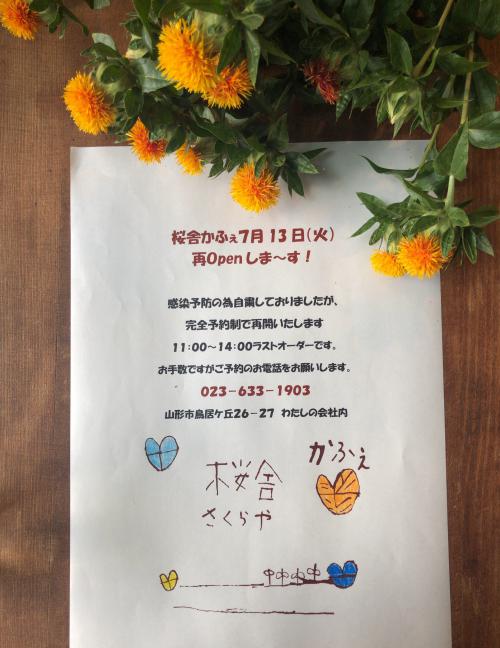 桜舎かふぇ7月13日(火)
再Openしま～す！
感染予防の為自粛しておりましたが、
完全予約制で再開いたします
11:00～14:00ラストオーダーです。
お手数ですがご予約のお電話をお願いします。
023-633-1903
山形市鳥居ケ丘26-27 わたしの会社内
かふぇ
桜舎
さくらや